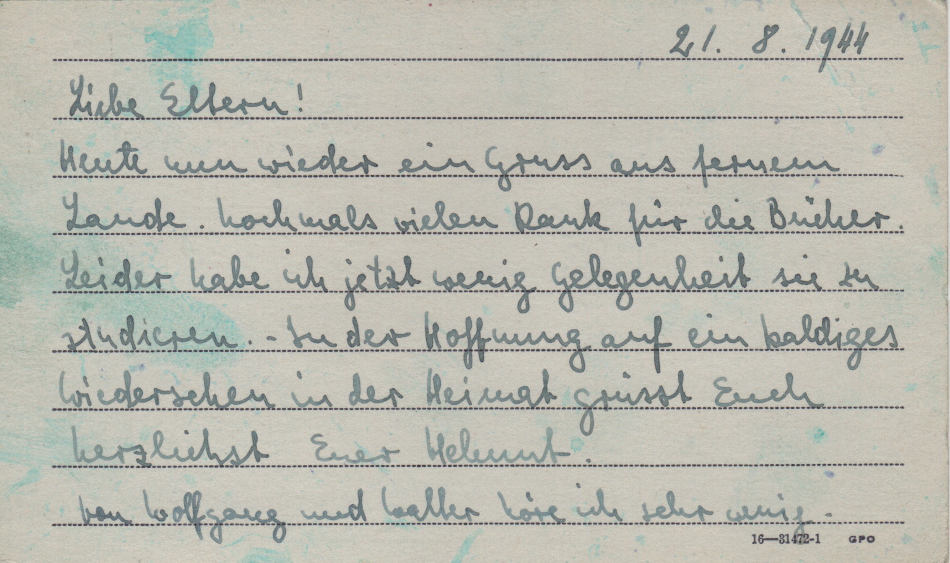 21. 8. 1944
Liebe Eltern!
Heute nun wieder ein Gruss aus fernem
Lande. Nochmals vielen Dank für die Bücher.
Leider habe ich jetzt wenig Gelegenheit sie zu
studieren. - In der Hoffnung auf ein baldiges
Wiedersehen in der Heimat grüsst Euch
herzlichst Euer Helmut.
Von Wolfgang und Walter höre ich sehr wenig.
16—31472-1 GPO